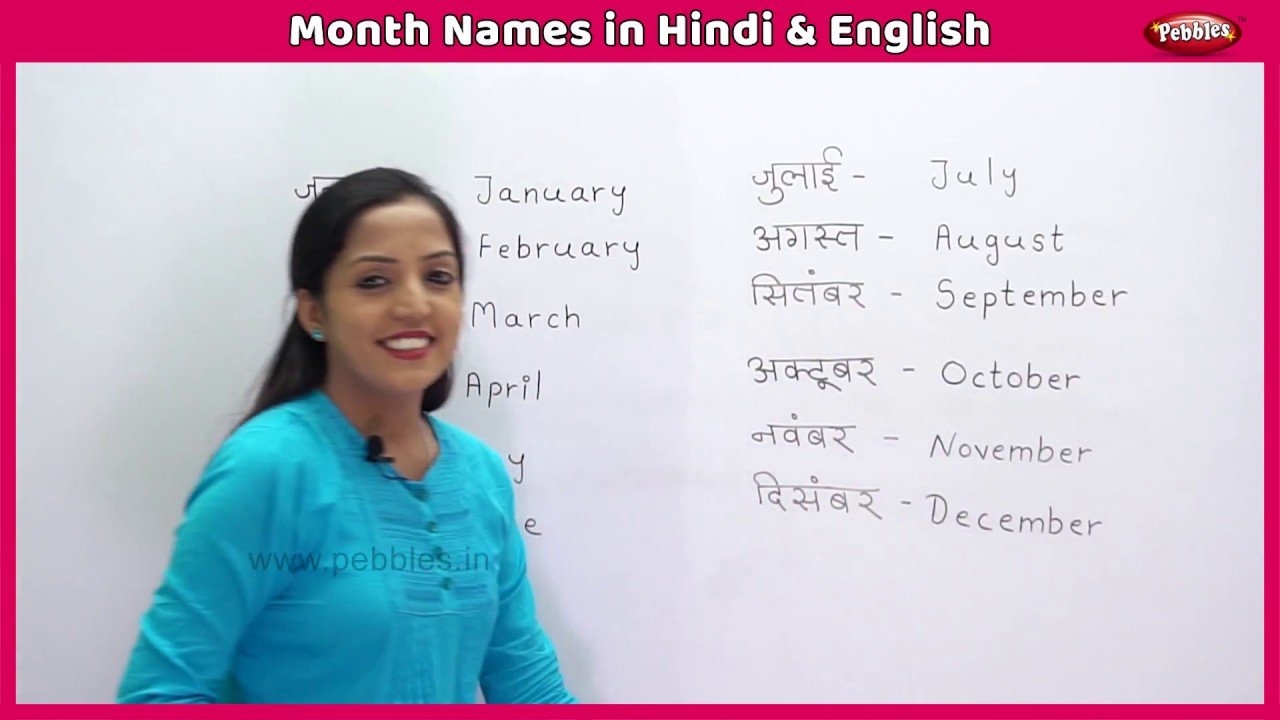 Month Names in Hindi & English
Pebbles™
January
February
March
April
y
e
जुलाई - July
अगस्त - August
सितंबर - September
अक्टूबर - October
नवंबर - November
दिसंबर - December
www.pebbles.in